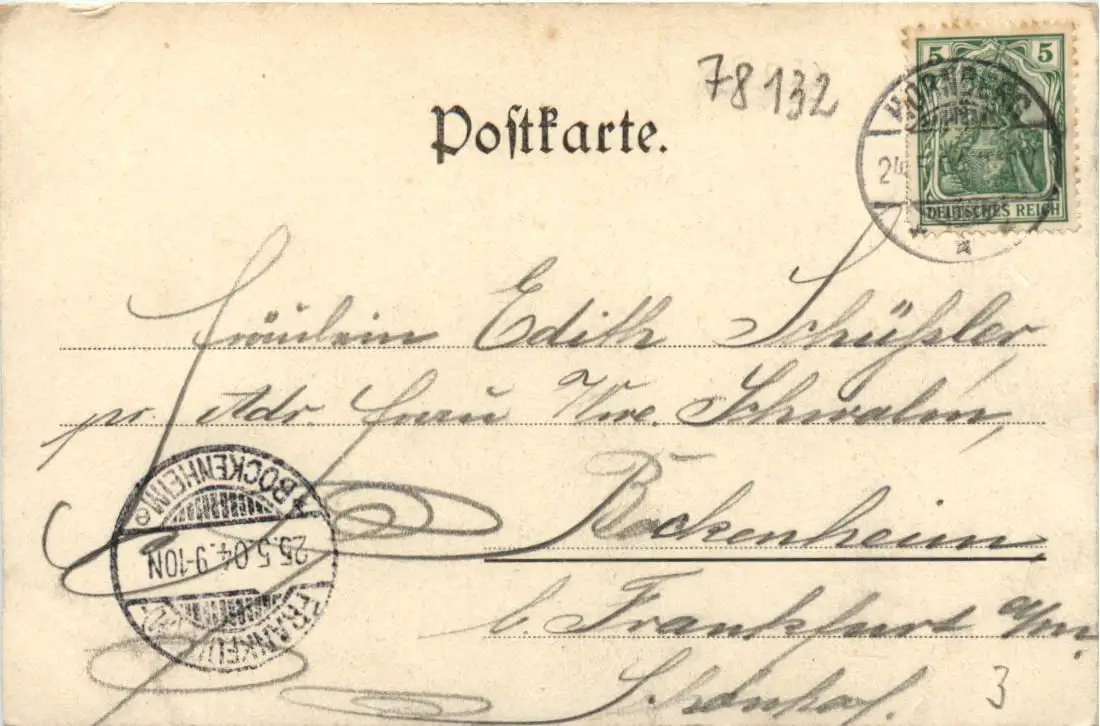 78132
Postkarte.
5 5
HORNBERG
24.5.04
DEUTSCHES REICH
Fräulein Edith Schüßler
pr. Adr. Frau Wwe. Schwalm,
Bockenheim
b. Frankfurt a/M.
Schönhof.
3
BOCKENHEIM
25.5.04. 9-10N
FRANKFURT